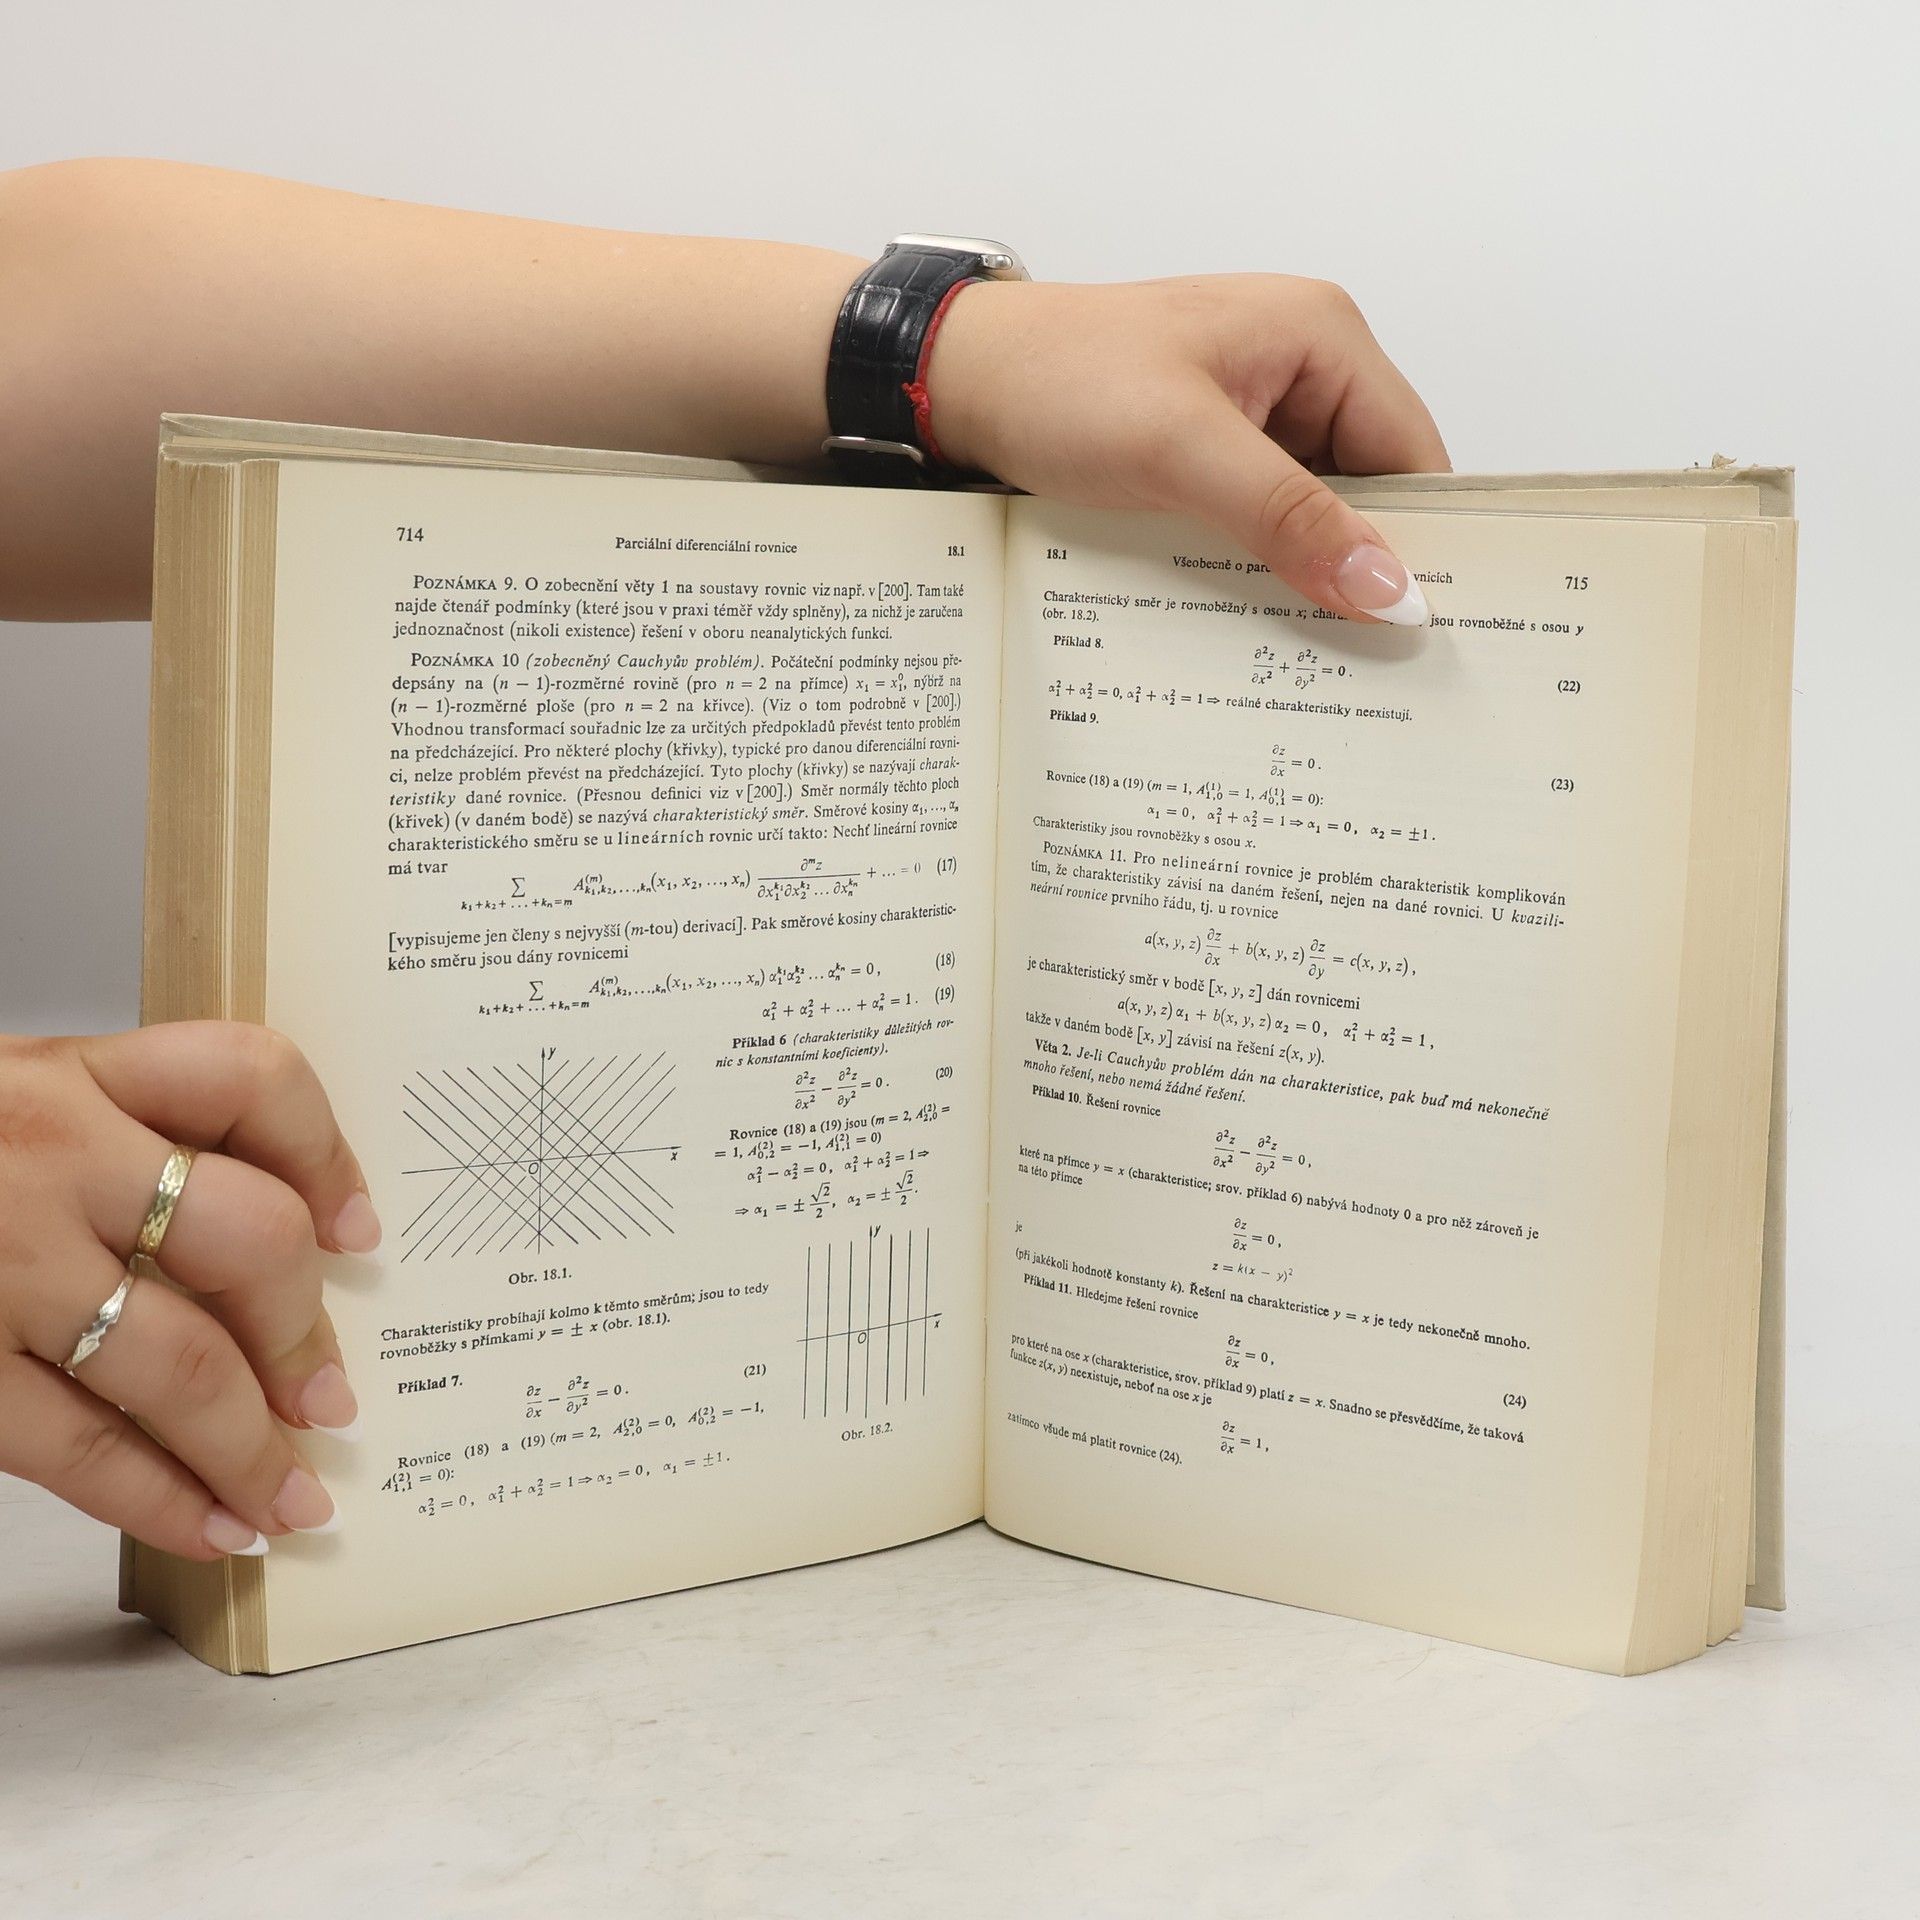 714 Parciální diferenciální rovnice 18.1
POZNÁMKA 9. O zobecnění věty 1 na soustavy rovnic viz např. v [200]. Tam také
najde čtenář podmínky (které jsou v praxi téměř vždy splněny), za nichž je zaručena
jednoznačnost (nikoli existence) řešení v oboru neanalytických funkcí.
POZNÁMKA 10 (zobecněný Cauchyův problém). Počáteční podmínky nejsou pře-
depsány na (n − 1)-rozměrné rovině (pro n = 2 na přímce) x₁ = x₁⁰, nýbrž na
(n − 1)-rozměrné ploše (pro n = 2 na křivce). (Viz o tom podrobně v [200].)
Vhodnou transformací souřadnic lze za určitých předpokladů převést tento problém
na předcházející. Pro některé plochy (křivky), typické pro danou diferenciální rovni-
ci, nelze problém převést na předcházející. Tyto plochy (křivky) se nazývají charak-
teristiky dané rovnice. (Přesnou definici viz v [200].) Směr normály těchto ploch
(křivek) (v daném bodě) se nazývá charakteristický směr. Směrové kosiny α₁, ..., αₙ
charakteristického směru se u lineárních rovnic určí takto: Nechť lineární rovnice
má tvar
∑_{k₁+k₂+...+kₙ=m} A^{(m)}_{k₁,k₂,...,kₙ}(x₁, x₂, ..., xₙ) ∂ᵐz/(∂x₁^{k₁}∂x₂^{k₂}...∂xₙ^{kₙ}) + ... = 0 (17)
[vypisujeme jen členy s nejvyšší (m-tou) derivací]. Pak směrové kosiny charakteristic-
kého směru jsou dány rovnicemi
∑_{k₁+k₂+...+kₙ=m} A^{(m)}_{k₁,k₂,...,kₙ}(x₁, x₂, ..., xₙ) α₁^{k₁}α₂^{k₂}...αₙ^{kₙ} = 0, (18)
α₁² + α₂² + ... + αₙ² = 1. (19)
y
x
O
Obr. 18.1.
Příklad 6 (charakteristiky důležitých rov-
nic s konstantními koeficienty).
∂²z/∂x² − ∂²z/∂y² = 0. (20)
Rovnice (18) a (19) jsou (m = 2, A^{(2)}_{2,0} =
= 1, A^{(2)}_{0,2} = −1, A^{(2)}_{1,1} = 0)
α₁² − α₂² = 0, α₁² + α₂² = 1 ⇒
⇒ α₁ = ± √2/2, α₂ = ± √2/2.
Charakteristiky probíhají kolmo k těmto směrům; jsou to tedy
rovnoběžky s přímkami y = ± x (obr. 18.1).
Příklad 7.
∂z/∂x − ∂²z/∂y² = 0. (21)
Rovnice (18) a (19) (m = 2, A^{(2)}_{2,0} = 0, A^{(2)}_{0,2} = −1,
A^{(2)}_{1,1} = 0):
α₂² = 0, α₁² + α₂² = 1 ⇒ α₂ = 0, α₁ = ±1.
y
x
O
Obr. 18.2.
18.1 Všeobecně o vnicích 715
Charakteristický směr je rovnoběžný s osou x; jsou rovnoběžné s osou y
(obr. 18.2).
Příklad 8.
∂²z/∂x² + ∂²z/∂y² = 0. (22)
α₁² + α₂² = 0, α₁² + α₂² = 1 ⇒ reálné charakteristiky neexistují.
Příklad 9.
∂z/∂x = 0. (23)
Rovnice (18) a (19) (m = 1, A^{(1)}_{1,0} = 1, A^{(1)}_{0,1} = 0):
α₁ = 0, α₁² + α₂² = 1 ⇒ α₁ = 0, α₂ = ±1.
Charakteristiky jsou rovnoběžky s osou x.
POZNÁMKA 11. Pro nelineární rovnice je problém charakteristik komplikován
tím, že charakteristiky závisí na daném řešení, nejen na dané rovnici. U kvazili-
neární rovnice prvního řádu, tj. u rovnice
a(x, y, z) ∂z/∂x + b(x, y, z) ∂z/∂y = c(x, y, z),
je charakteristický směr v bodě [x, y, z] dán rovnicemi
a(x, y, z) α₁ + b(x, y, z) α₂ = 0, α₁² + α₂² = 1,
takže v daném bodě [x, y] závisí na řešení z(x, y).
Věta 2. Je-li Cauchyův problém dán na charakteristice, pak buď má nekonečně
mnoho řešení, nebo nemá žádné řešení.
Příklad 10. Řešení rovnice
∂²z/∂x² − ∂²z/∂y² = 0,
které na přímce y = x (charakteristice; srov. příklad 6) nabývá hodnoty 0 a pro něž zároveň je
na této přímce
∂z/∂x = 0,
je
z = k(x − y)²
(při jakékoli hodnotě konstanty k). Řešení na charakteristice y = x je tedy nekonečně mnoho.
Příklad 11. Hledejme řešení rovnice
∂z/∂x = 0, (24)
pro které na ose x (charakteristice, srov. příklad 9) platí z = x. Snadno se přesvědčíme, že taková
funkce z(x, y) neexistuje, neboť na ose x je
∂z/∂x = 1,
zatímco všude má platit rovnice (24).